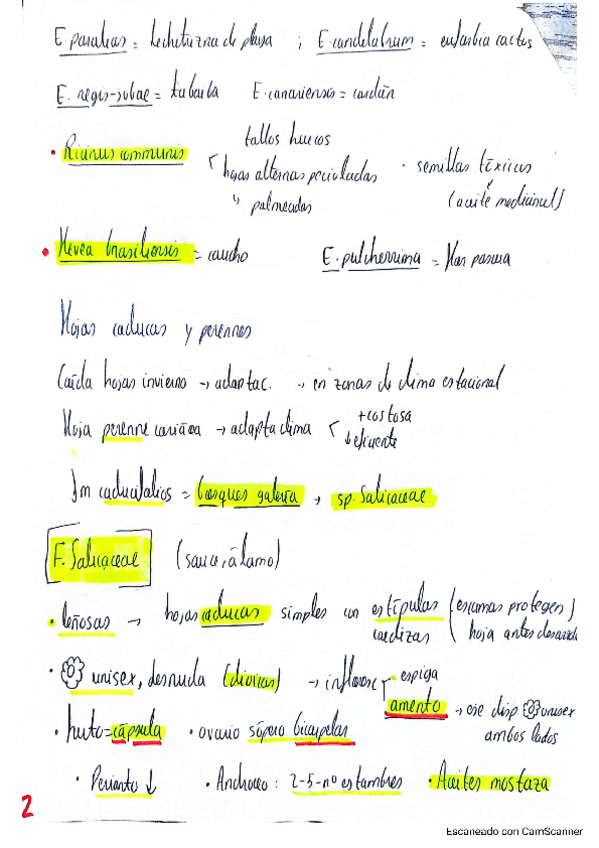 E. paralias = lechetrezna de playa ; E. candelabrum = euforbia cactus
E. regis-jubae = tabaiba E. canariensis = cardón
• Ricinus communis
tallos huecos
hojas alternas pecioladas
↳ palmeadas
• semillas tóxicas
(aceite medicinal)
• Hevea brasiliensis = caucho E. pulcherrima = Flor pascua
Hojas caducas y perennes
Caída hojas invierno → adaptac. → en zonas de clima estacional
Hoja perenne → adapta clima
+ costosa
↓ eficiente
caducifolios = bosques galería → sp. Salicaceae
F. Salicaceae (sauce, álamo)
• leñosas → hojas caducas simples con estípulas (escamas protegen
hoja antes
• unisex, desnuda (dioicas) → infloresc
• espiga
amento → eje disp unisex
ambos lados
• fruto = cápsula • ovario súpero bicarpelar
• Perianto ↓ • Androceo: 2-5-nº estambres • Aceites mostaza
2
Escaneado con CamScanner